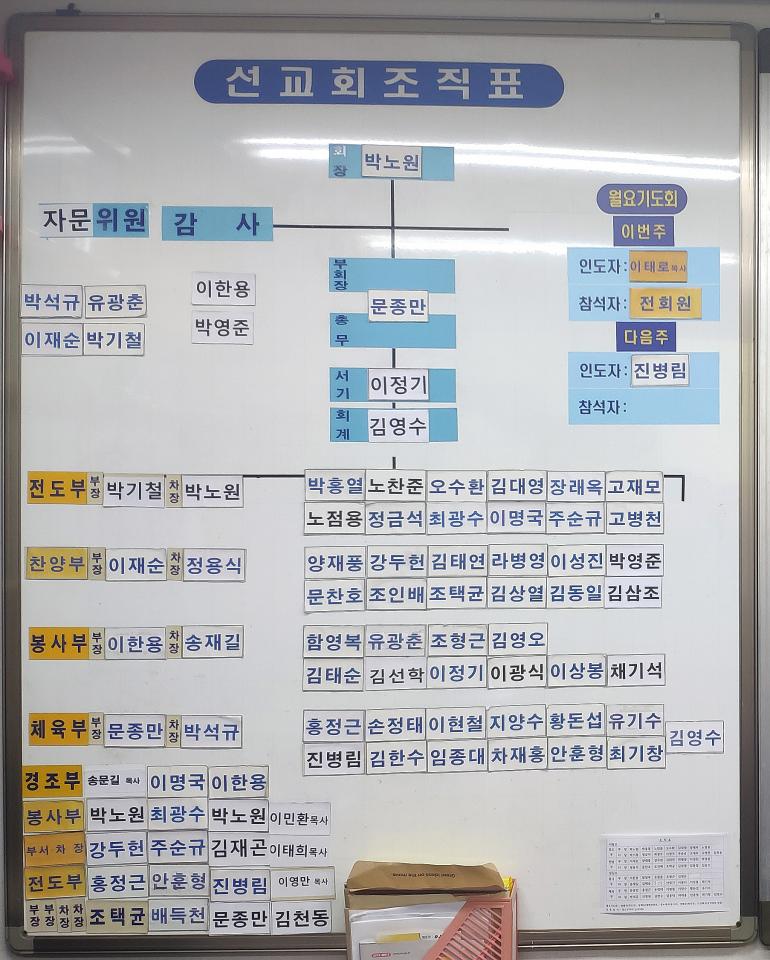 선교회조직표
회장 박노원
자문위원 감 사
박석규 유광춘 이한용
이재순 박기철 박영준
부회장
문종만
총무
서기 이정기
회계 김영수
월요기도회
이번주
인도자: 이태로목사
참석자: 전회원
다음주
인도자: 진병림
참석자:
전도부 부장 박기철 차장 박노원
박흥열 노찬준 오수환 김대영 장래옥 고재모
노점용 정금석 최광수 이명국 주순규 고병천
찬양부 부장 이재순 차장 정용식
양재풍 강두헌 김태연 라병영 이성진 박영준
문찬호 조인배 조택균 김상열 김동일 김삼조
봉사부 부장 이한용 차장 송재길
함영복 유광춘 조형근 김영오
김태순 김선학 이정기 이광식 이상봉 채기석
체육부 부장 문종만 차장 박석규
홍정근 손정태 이현철 지양수 황돈섭 유기수 김영수
진병림 김한수 임종대 차재홍 안훈형 최기창
경조부 송문길 목사 이명국 이한용
봉사부 박노원 최광수 박노원 이민환목사
부서 차 장 강두헌 주순규 김재곤 이태희목사
전도부 홍정근 안훈형 진병림 이영만 목사
부장 부장 차장 차장 조택균 배득천 문종만 김천동